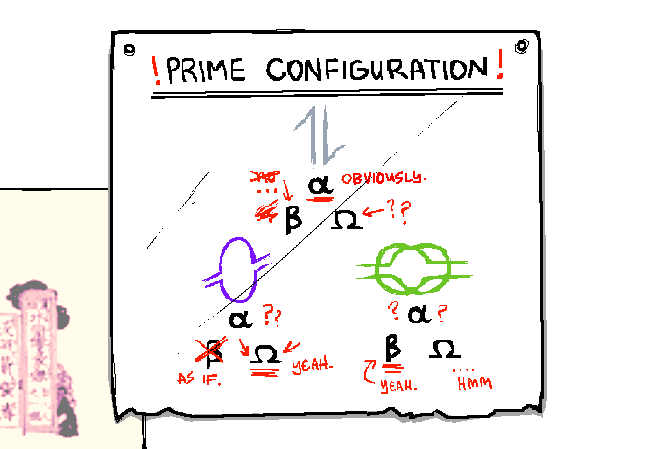 ! PRIME CONFIGURATION !
...
α OBVIOUSLY.
β Ω ??
α ??
β Ω
AS IF. YEAH.
? α ?
β Ω
YEAH. .... HMM